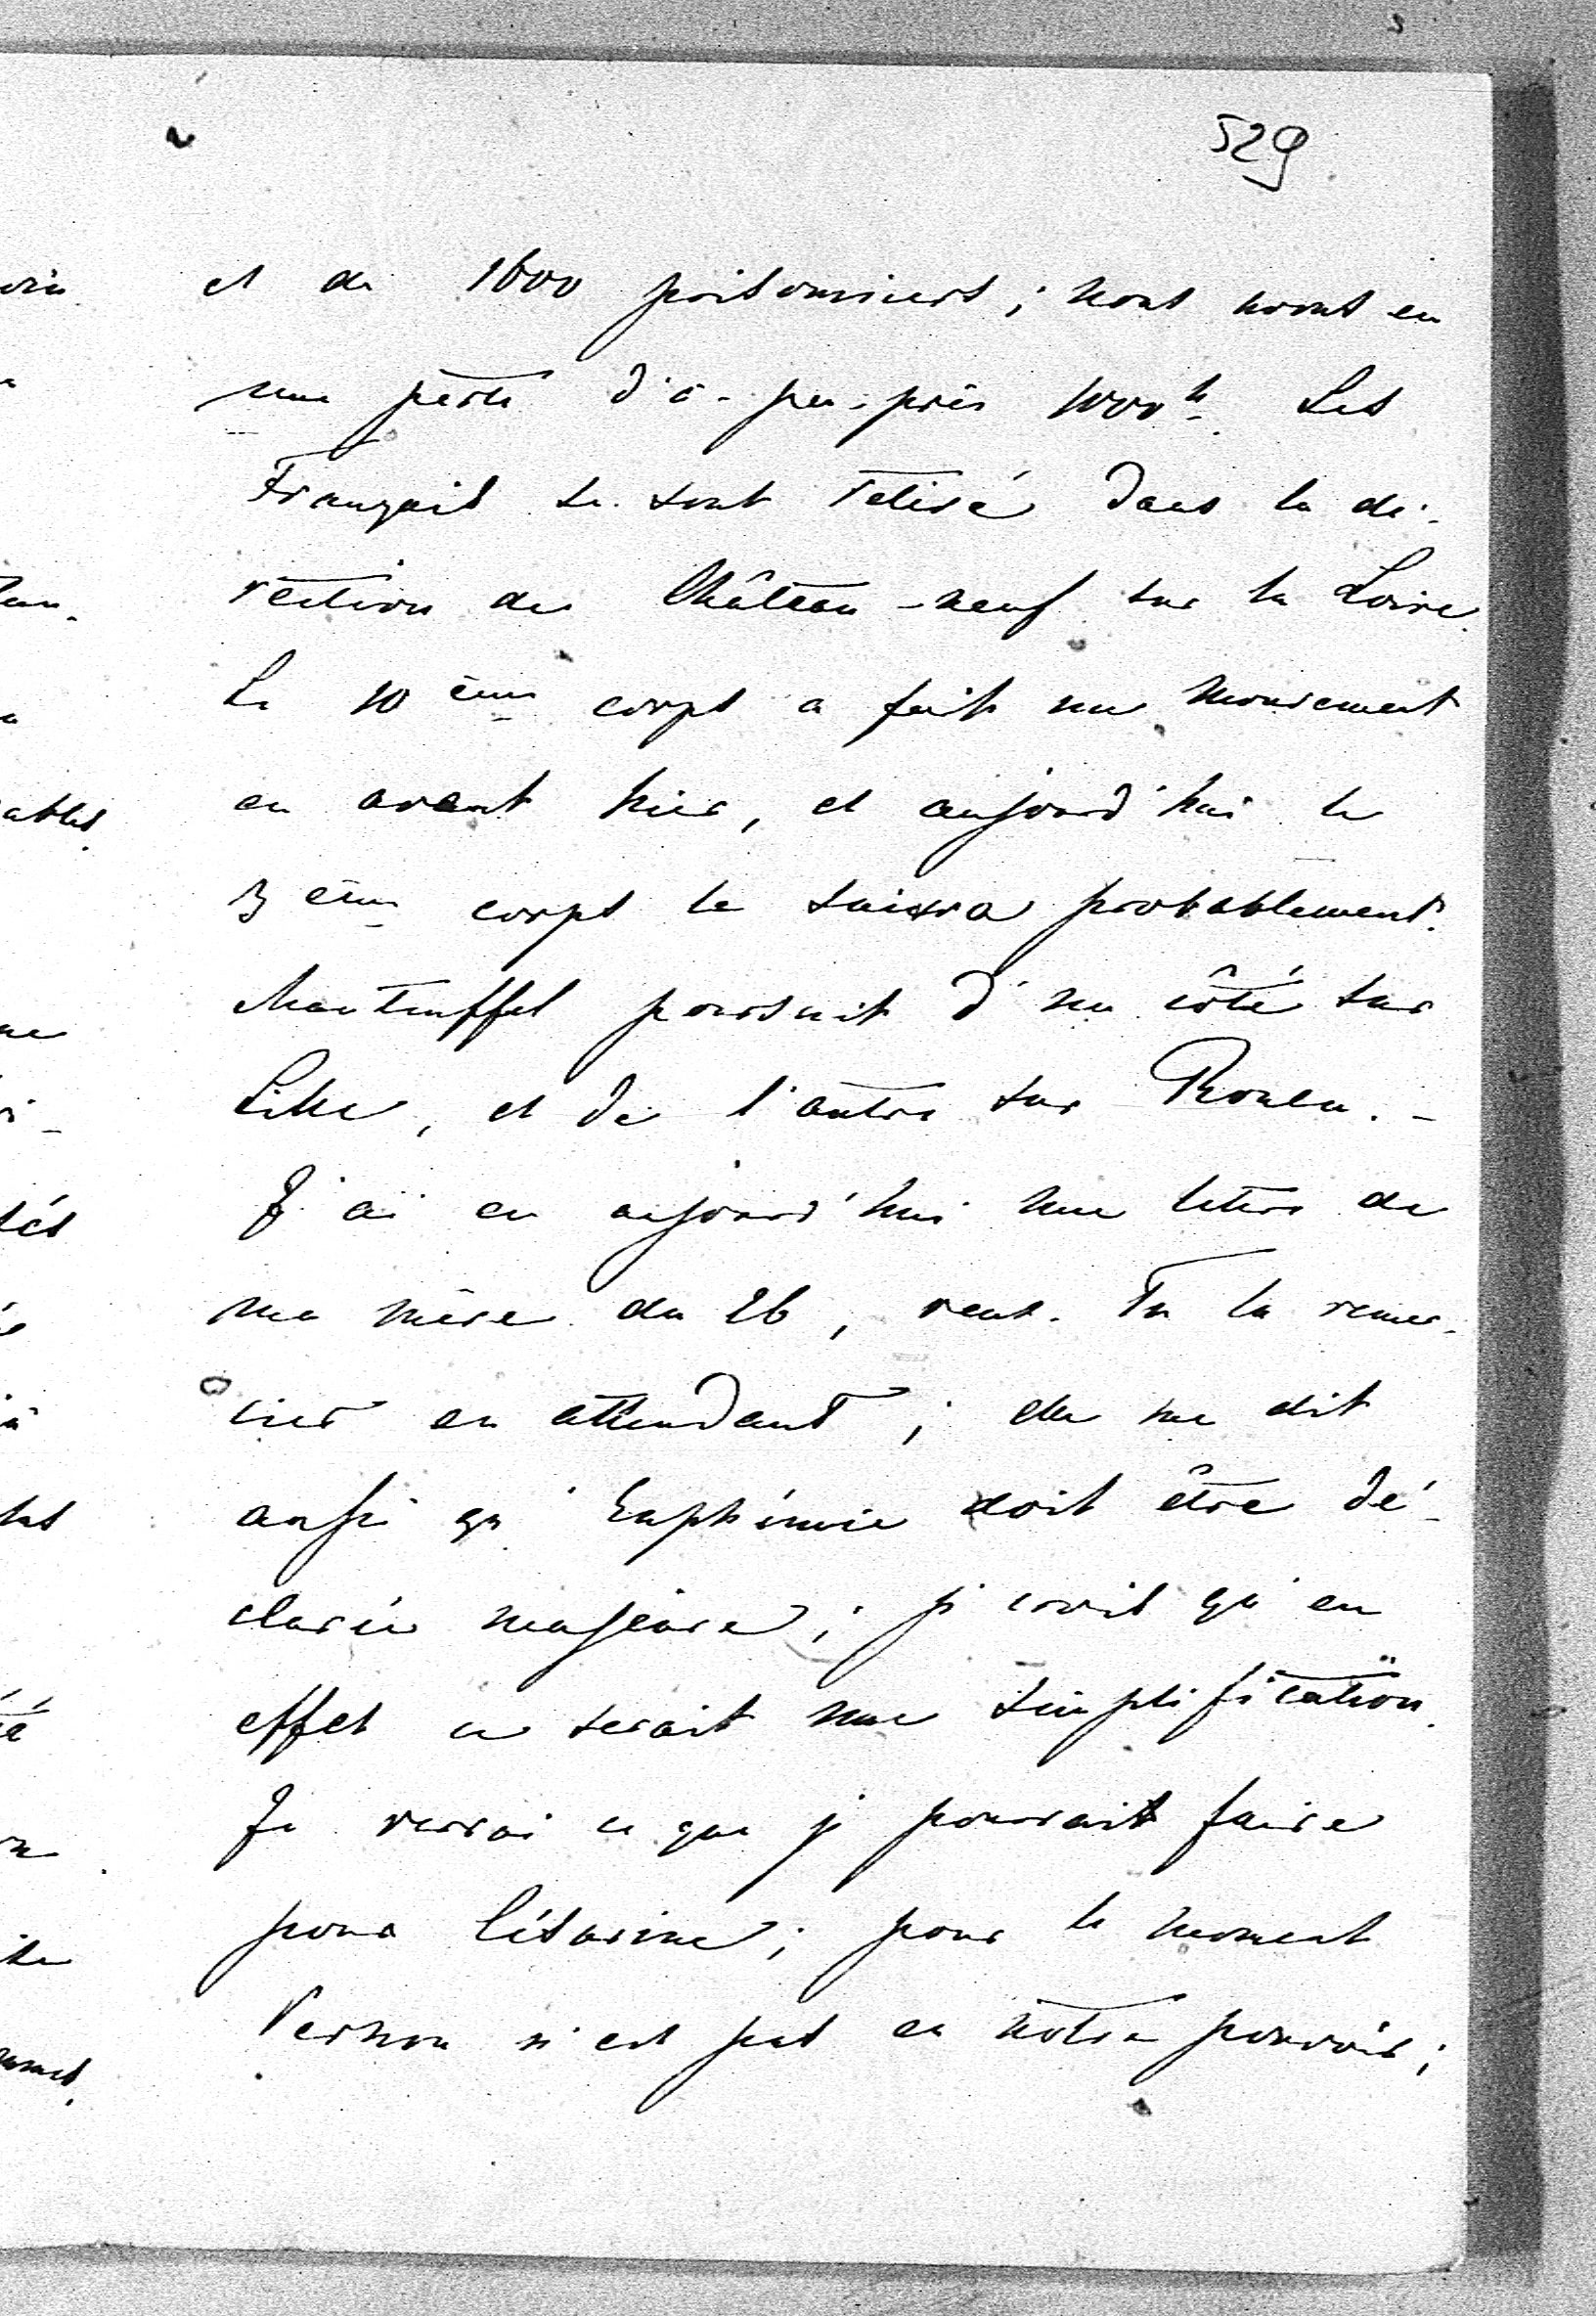 529
et de 1600 prisonniers ; nous avons eu
une perte d'à-peu-près 1000 h. Les
Français se sont retiré dans la di-
rection de Château-neuf sur la Loire.
Le 10 ème corps a fait un mouvement
en avant hier, et aujourd'hui le
3 ème corps le suivra probablement.
Manteuffel poursuit d'un côté sur
Lille, et de l'autre sur Rouen. -
J'ai eu aujourd'hui une lettre de
ma mère du 26, veux-Tu la remer-
cier en attendant ; elle me dit
aussi qu'Euphémie doit être dé-
clarée majeure ; je crois qu'en
effet ce serait une simplification.
Je verrai ce que je pourrait faire
pour Césarine ; pour le moment
Vernon n'est pas en notre pouvoir ;